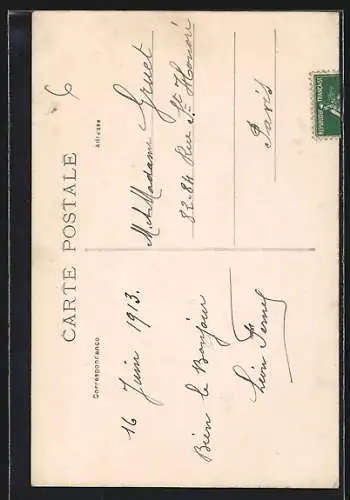 CARTE POSTALE
Correspondance
16 Juin 1913.
Bien le Bonjour
Léon
Adresse
6
M. et Madame Gruet
82-84 Rue St Honoré
Paris
REPUBLIQUE FRANÇAISE